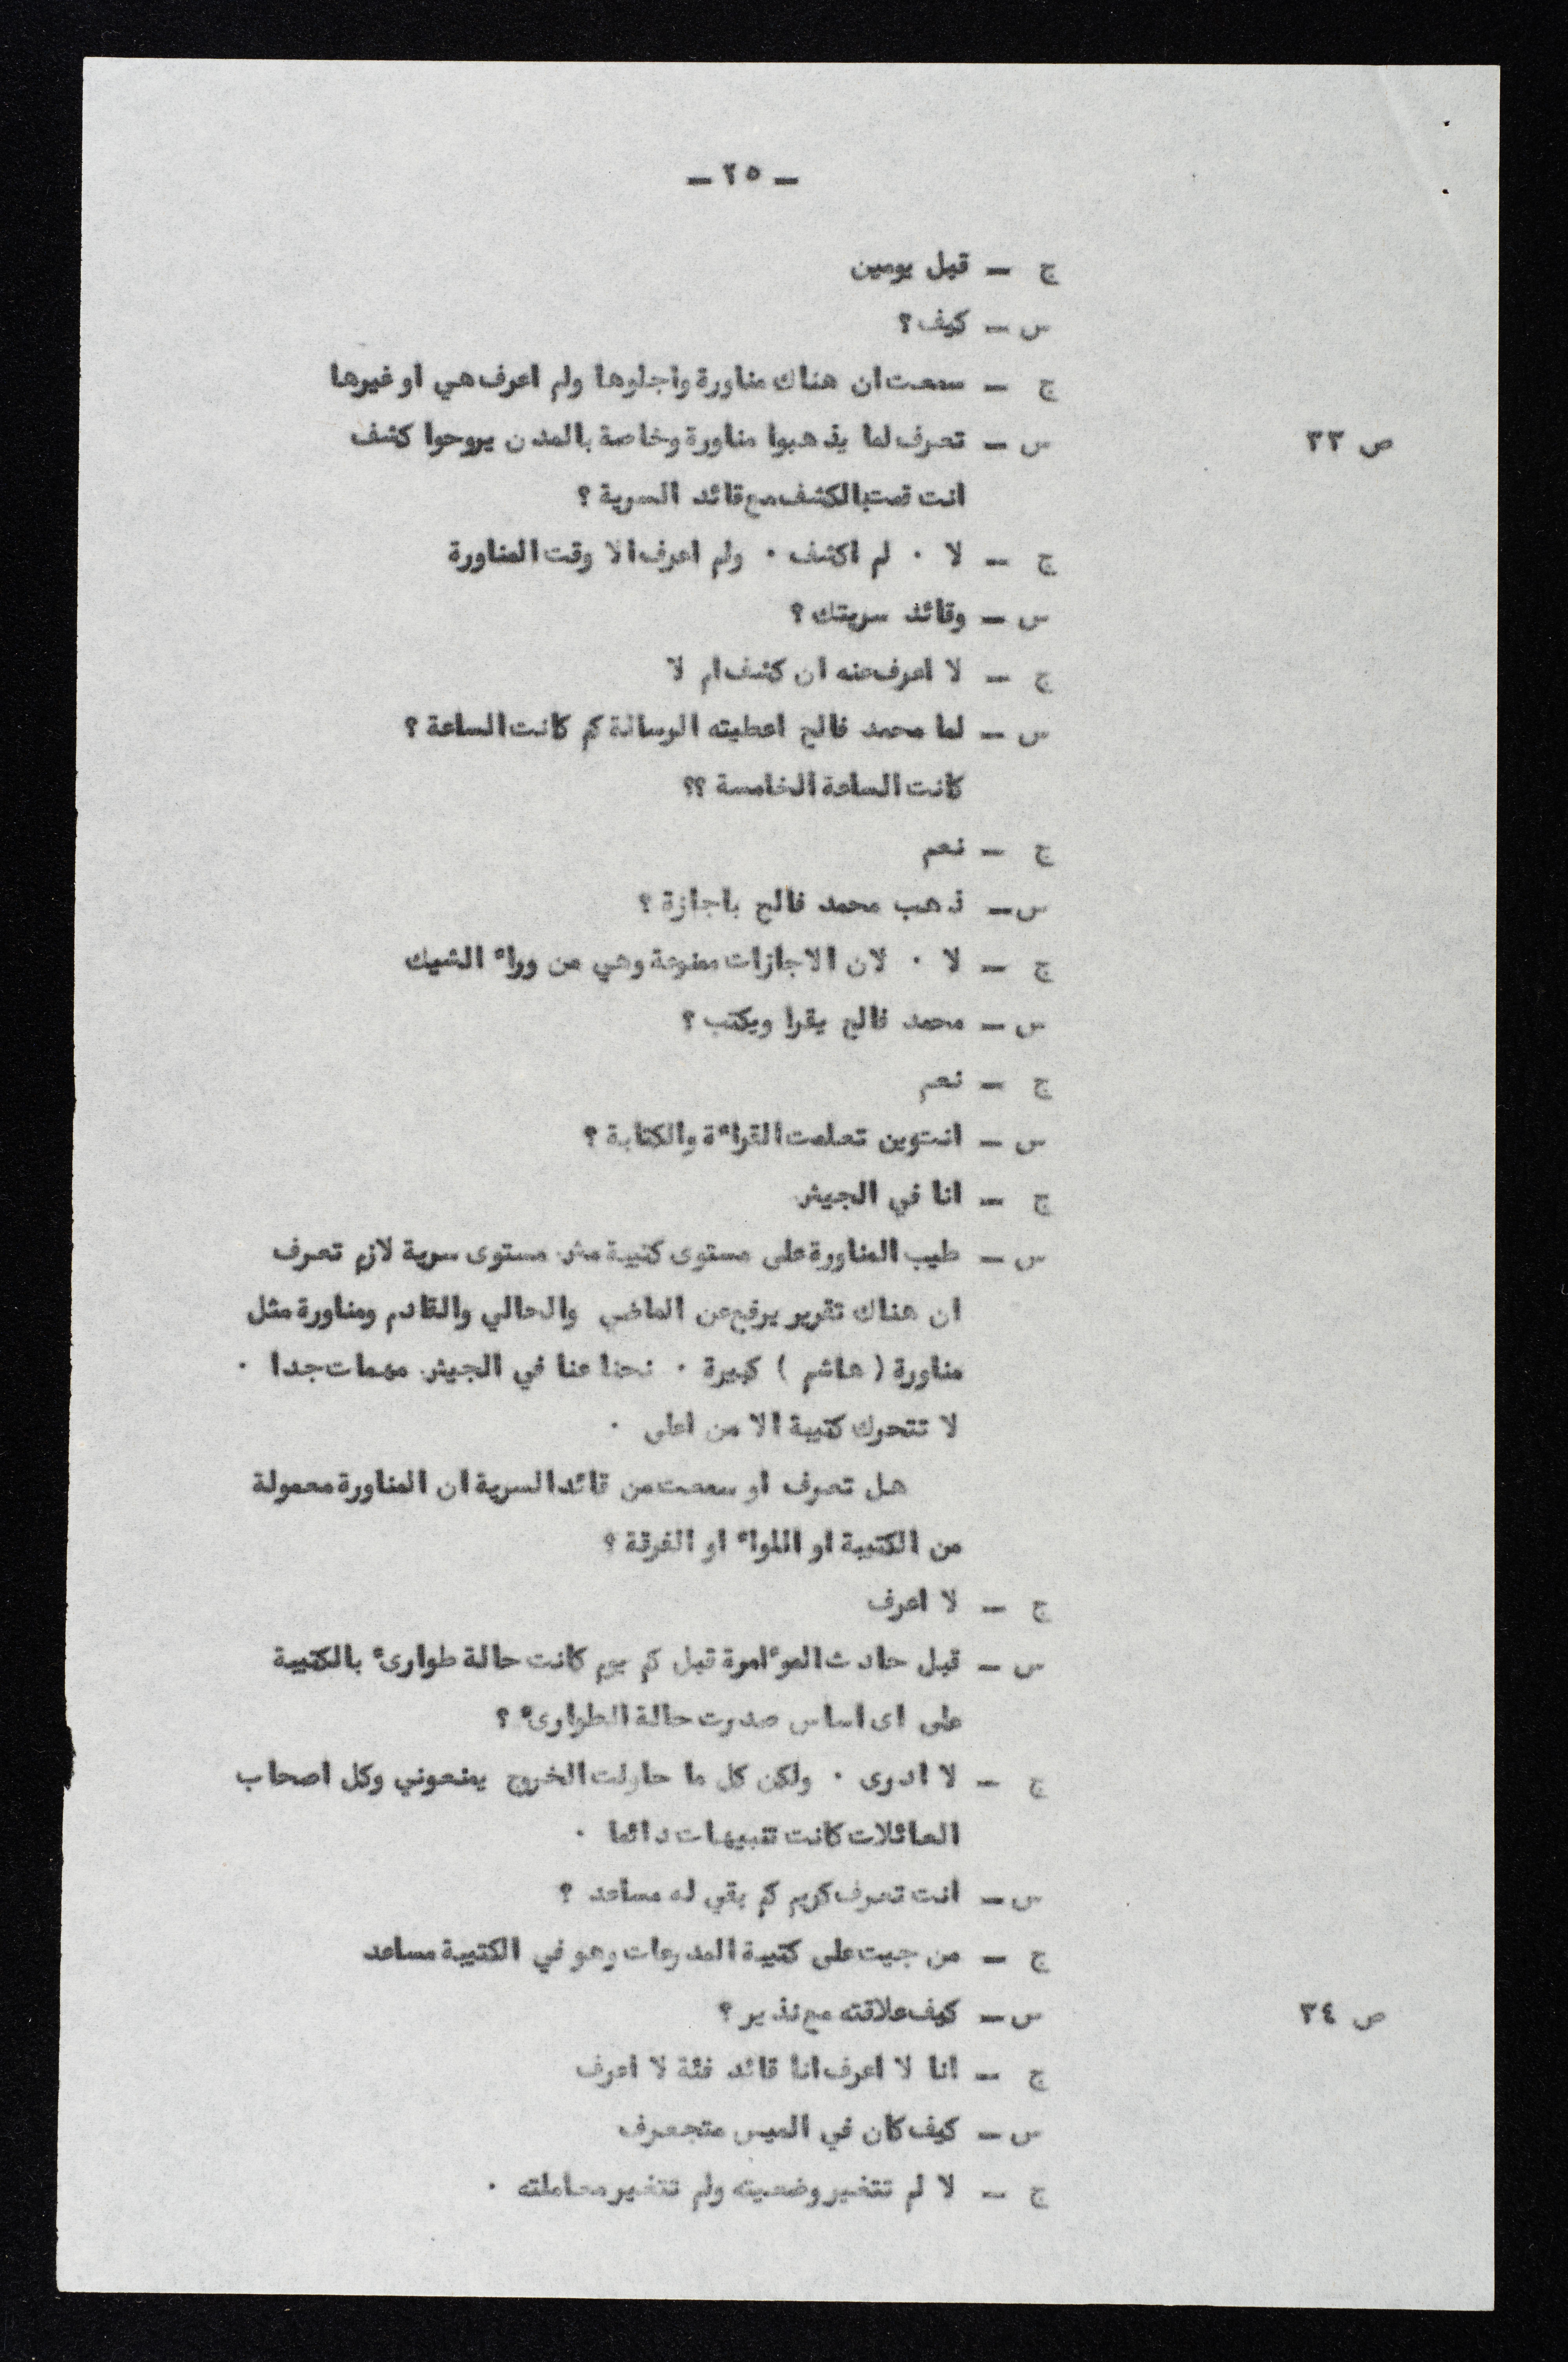 — ٢٥ —
ج — قبل يومين
س — كيف ؟
ج — سمعت ان هناك مناورة واجلوها ولم اعرف هي او غيرها
ص ٣٣ س — تعرف لما يذهبوا مناورة وخاصة بالمدن يروحوا كشف
انت قمت بالكشف مع قائد السرية ؟
ج — لا ٠ لم اكشف ٠ ولم اعرف الا وقت المناورة
س — وقائد سريتك ؟
ج — لا اعرف عنه ان كشف ام لا
س — لما محمد فالح اعطيته الرسالة كم كانت الساعة ؟
كانت الساعة الخامسة ؟؟
ج — نعم
س — ذهب محمد فالح باجازة ؟
ج — لا ٠ لان الاجازات ممنوعة وهي من وراء الشيك
س — محمد فالح يقرا ويكتب ؟
ج — نعم
س — انت وين تعلمت القراءة والكتابة ؟
ج — انا في الجيش
س — طيب المناورة على مستوى كتيبة مش مستوى سرية لازم تعرف
ان هناك تقرير يرفع عن الماضي والحالي والقادم ومناورة مثل
مناورة ( هاشم ) كبيرة ٠ نحنا عنا في الجيش مهمات جدا ٠
لا تتحرك كتيبة الا من اعلى ٠
هل تعرف او سمعت من قائد السرية ان المناورة معمولة
من الكتيبة او اللواء او الفرقة ؟
ج — لا اعرف
س — قبل حادث الموءامرة قبل كم يوم كانت حالة طوارىء بالكتيبة
على اى اساس صدرت حالة الطوارىء ؟
ج — لا ادرى ٠ ولكن كل ما حاولت الخروج يمنعوني وكل اصحاب
العائلات كانت تنبيهات دائما ٠
س — انت تعرف كريم كم بقي له مساعد ؟
ج — من جيت على كتيبة المدرعات وهو في الكتيبة مساعد
ص ٣٤ س — كيف علاقته مع نذير ؟
ج — انا لا اعرف انا قائد فئة لا اعرف
س — كيف كان في الميس متجعرف
ج — لا لم تتغير وضعيته ولم تتغير معاملته ٠